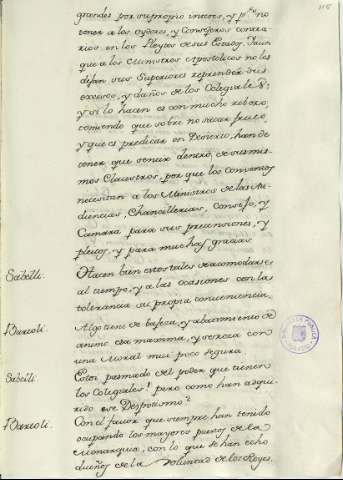 grandes por su propio interes, y p.r no
tener a los oydores, y Consejeros contra-
rios en los Pleytos de sus Estados, Y aun
que a los Ministros Apostolicos no les
dejan sus Superiores reprender sus
excesos, y daños de los Colegiales;
y si lo hacen es con mucho rebozo,
temiendo que sobre no sacar fruto,
y que es predicar en Desierto, han de
tener que sentir dentro de sus mis-
mos Claustros, por que los Conventos
necesitan a los Ministros de las Au-
diencias, Chancillerias, Consejo, y
Camara para sus pretensiones, y
pleitos, y para muchas gracias
Sabelli. Hacen bien estos tales de acomodarse
al tiempo, y a las ocasiones con la
tolerancia su propia conveniencia.
Barcoli. Algo tiene de bajeza, y abatimiento de
animo esa maxima, y se roza con
una Moral muy poco segura.
Sabelli. Estoy pasmado del poder que tienen
los Colegiales! pero como han adqui-
rido ese Despotismo?
Barcoli. Con el favor que siempre han tenido
ocupando los mayores puestos de la
Monarquia, con lo que se han echo
dueños de la Voluntad de los Reyes,